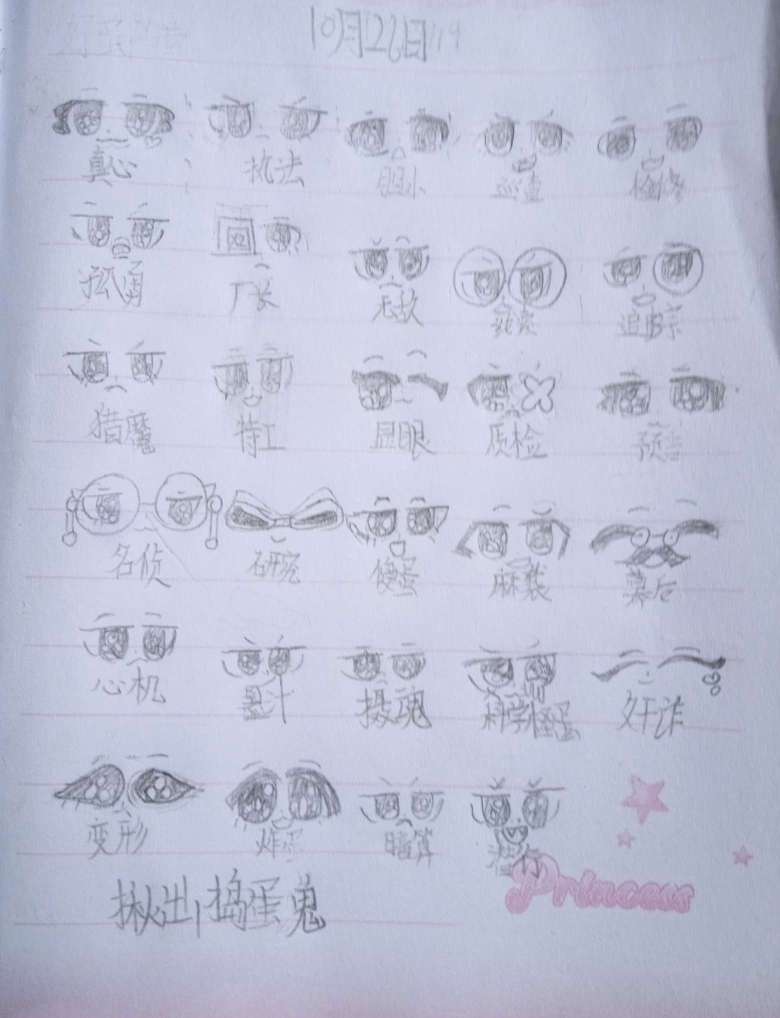 10月26日
真心 执法 胆小 巡查
孤勇 厂长 无敌 追踪
猎魔 特工 显眼 质检 预言
名侦 研究 傻蛋 麻袋 幕后
心机 墨汁 摄魂 科学怪蛋 奸诈
变形 炸蛋 暗算
Princess
揪出捣蛋鬼